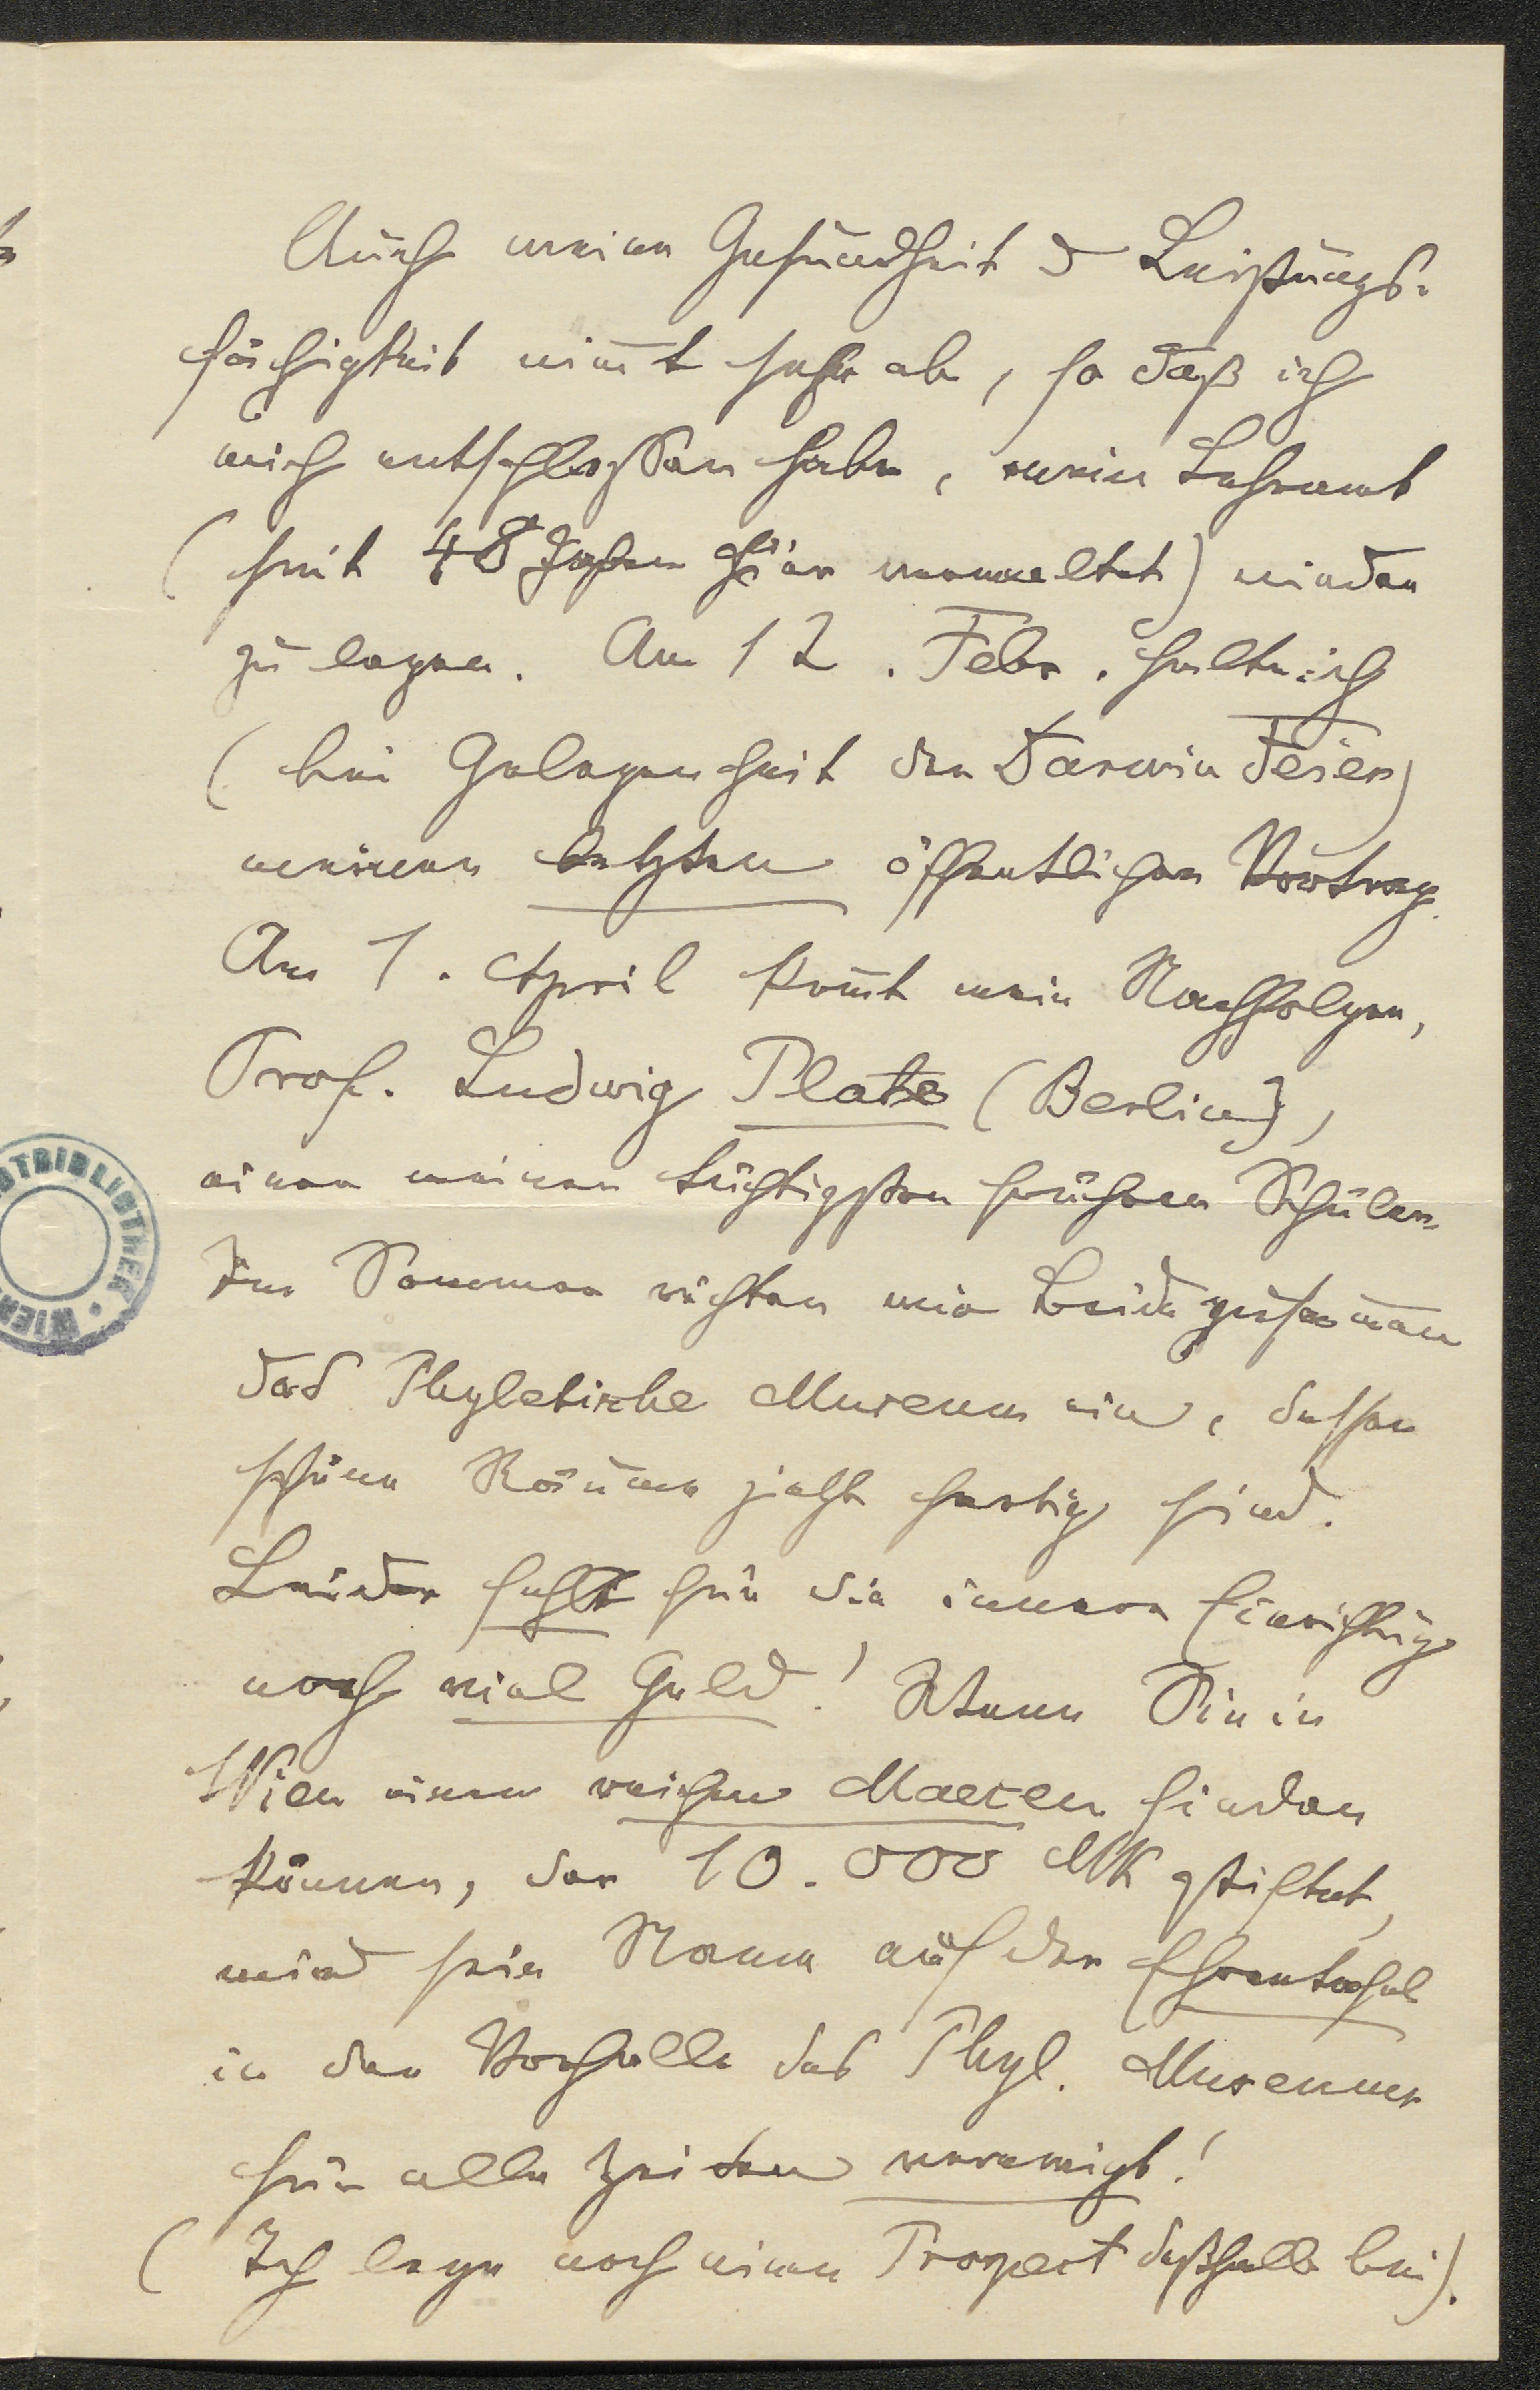 Auch meine Gesundheit & Leistungs-
fähigkeit nim̄t sehr ab, so daß ich
mich entschlossen habe, mein Lehramt
(seit 48 Jahren hier verwaltet) nieder
zu legen. Am 12. Febr. halte ich
(bei Gelegenheit der Darwin Feier)
meinen letzten öffentlichen Vortrag.
Am 1. April kom̄t mein Nachfolger,
Prof. Ludwig Plate (Berlin),
einer meiner tüchtigsten früheren Schüler.
Im Sommer richten wir Beide zusam̄en
das Phyletische Museum ein, dessen
schöne Räume jetzt fertig sind.
Leider fehlt für die innere Einrichtung
noch viel Geld! Wenn Sie in
Wien einen reichen Maecen finden
können, der 10.000 Mk stiftet,
wird sein Name auf der Ehrentafel
in der Vorhalle des Phyl. Museums
für alle Zeiten verewigt!
(Ich lege noch einen Prospect deßhalb bei).
BIBLIOTHEK · WIEN